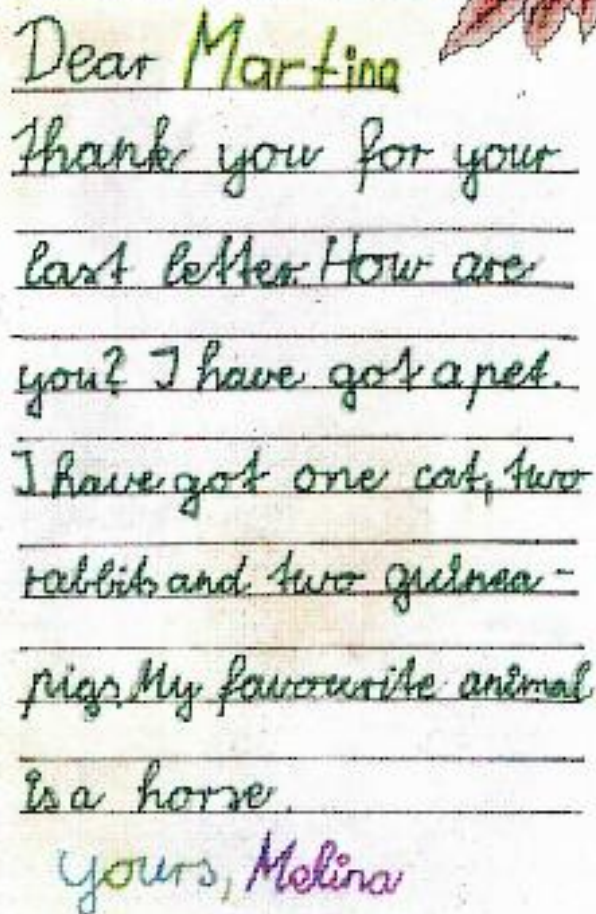 Dear Martina
thank you for your
last letter. How are
you? I have got a pet.
I have got one cat, two
rabbits and two guinea-
pigs. My favourite animal
is a horse.
yours, Melina